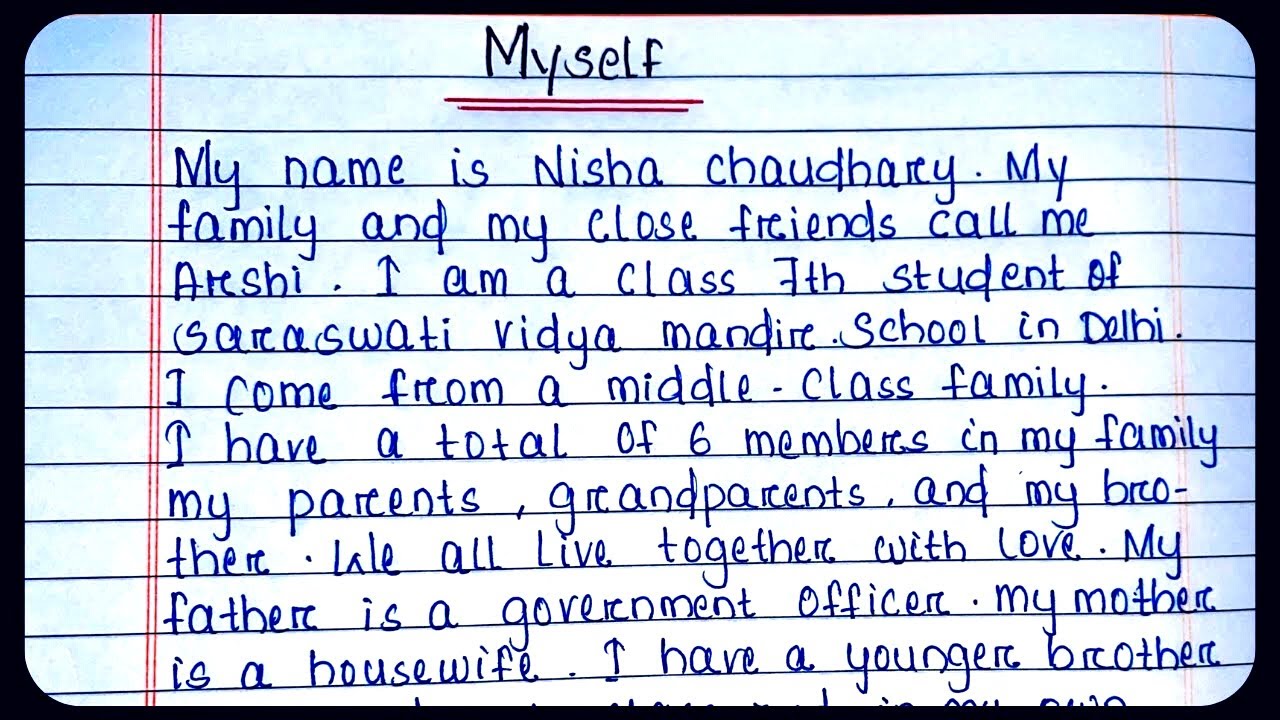 Myself
My name is Nisha chaudhary. My
family and my close friends call me
Arshi. I am a class 7th student of
saraswati vidya mandir. School in Delhi.
I come from a middle-class family.
I have a total of 6 members in my family
my parents, grandparents, and my bro-
ther. We all live together with love. My
father is a government officer. my mother
is a housewife. I have a younger brother
in my own